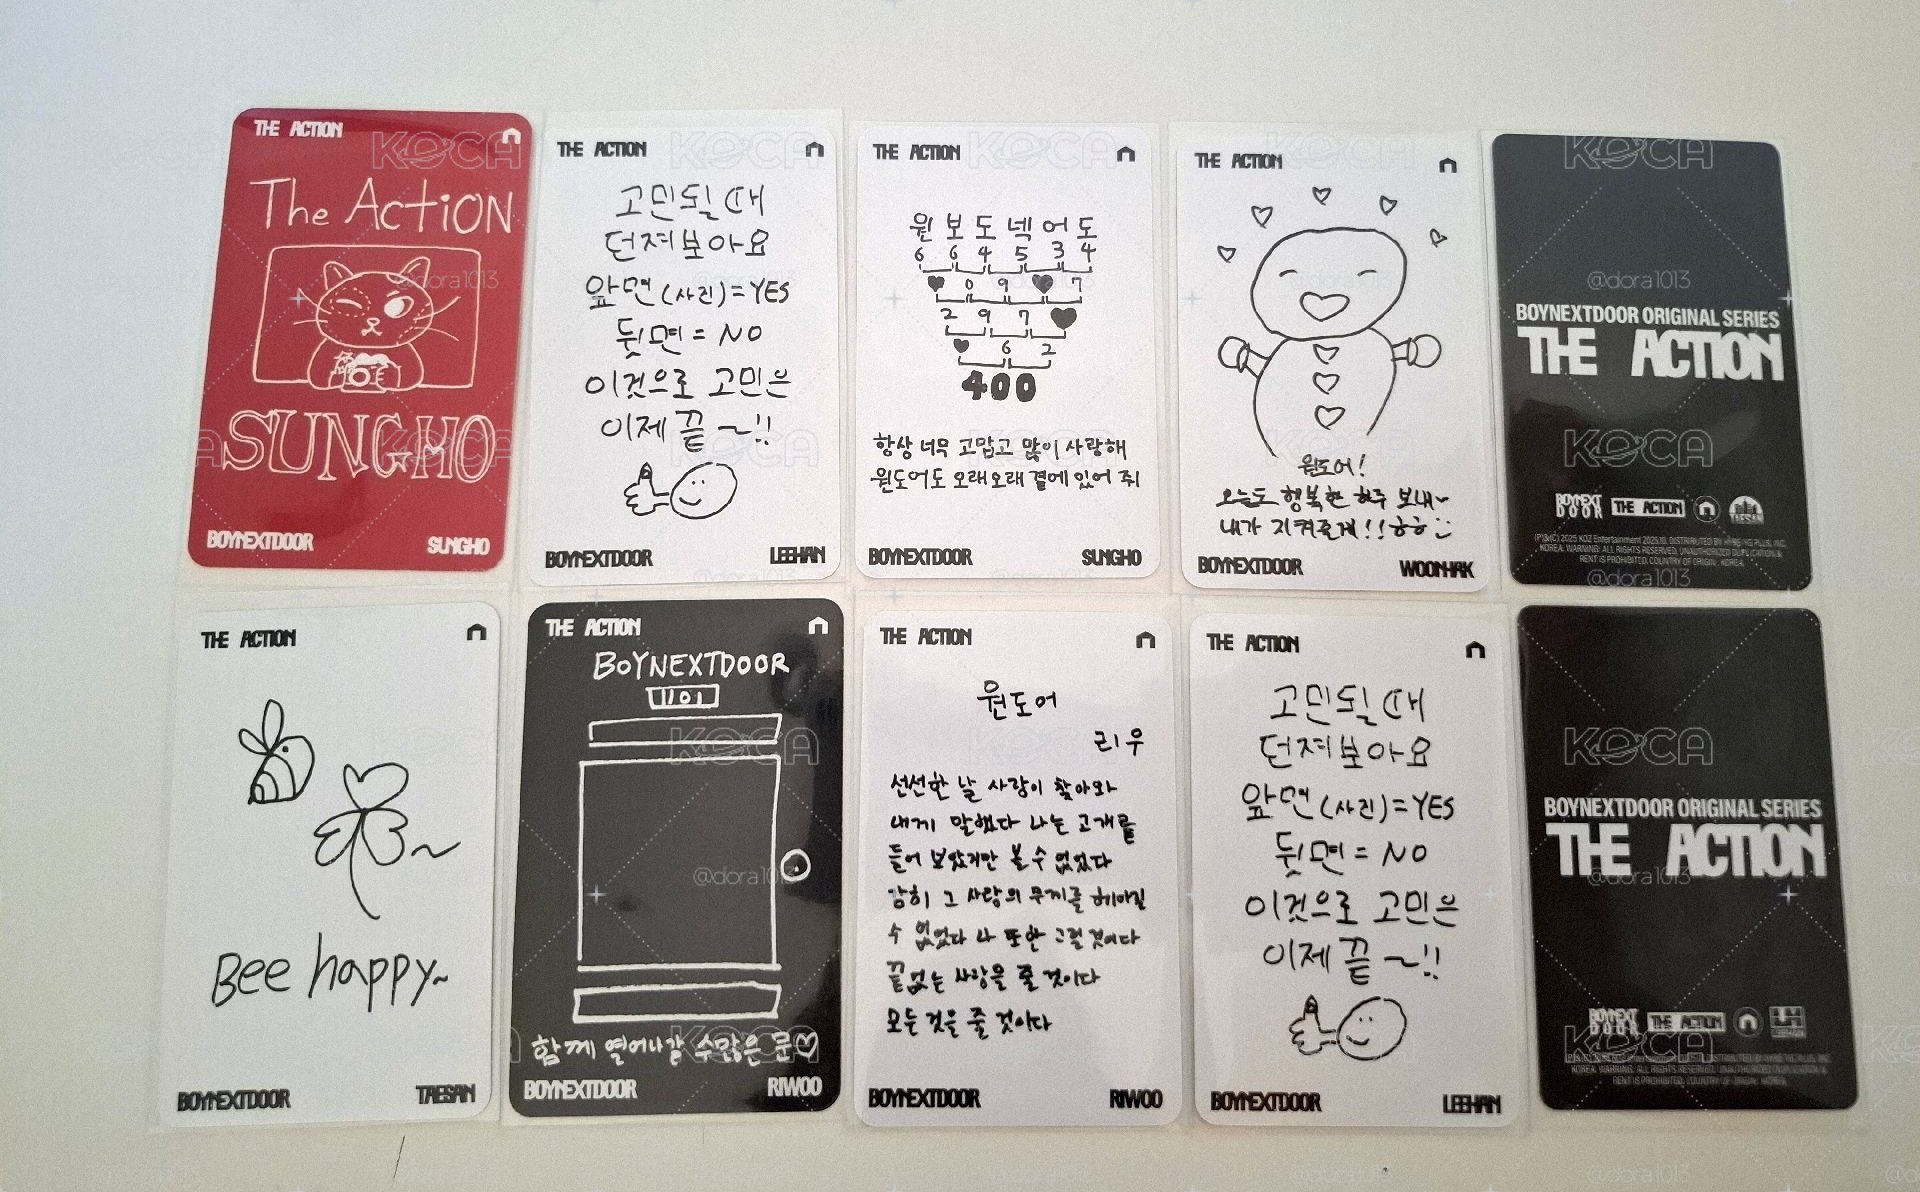 THE ACTION
The Action
SUNGHO
BOYNEXTDOOR SUNGHO
THE ACTION
고민될 때
던져보아요
앞면 (사진) = YES
뒷면 = NO
이것으로 고민은
이제 끝 ~!!
BOYNEXTDOOR LEEHAN
THE ACTION
원 보 도 넥 어 도
6 6 4 5 3 4
♥ 0 9 ♥ 7
2 9 7 ♥
♥ 6 2
400
항상 너무 고맙고 많이 사랑해
원도어도 오래오래 곁에 있어 줘
BOYNEXTDOOR SUNGHO
THE ACTION
원도어!
오늘도 행복한 하루 보내~
내가 지켜줄게!! ㅎㅎ
BOYNEXTDOOR WOONHAK
BOYNEXTDOOR ORIGINAL SERIES
THE ACTION
BOYNEXT
DOOR
THE ACTION
TAESAN
(P)&(C) 2025 KOZ Entertainment 2025.10. DISTRIBUTED BY YG PLUS, INC.
KOREA. WARNING: ALL RIGHTS RESERVED. UNAUTHORIZED DUPLICATION &
RENT IS PROHIBITED. COUNTRY OF ORIGIN : KOREA.
THE ACTION
Bee happy~
BOYNEXTDOOR TAESAN
THE ACTION
BOYNEXTDOOR
1101
함께 열어나갈 수많은 문♡
BOYNEXTDOOR RIWOO
THE ACTION
원도어
리우
선선한 날 사랑이 찾아와
내게 말했다 나는 고개를
들어 보았지만 볼 수 없었다
감히 그 사랑의 무게를 헤아릴
수 없었다 나 또한 그럴 것이다
끝없는 사랑을 줄 것이다
모든 것을 줄 것이다
BOYNEXTDOOR RIWOO
THE ACTION
고민될 때
던져보아요
앞면 (사진) = YES
뒷면 = NO
이것으로 고민은
이제 끝 ~!!
BOYNEXTDOOR LEEHAN
BOYNEXTDOOR ORIGINAL SERIES
THE ACTION
BOYNEXT
DOOR
THE ACTION
KOREA. WARNING: ALL RIGHTS RESERVED. UNAUTHORIZED DUPLICATION &
RENT IS PROHIBITED. COUNTRY OF ORIGIN : KOREA.
KOCA
@dora1013